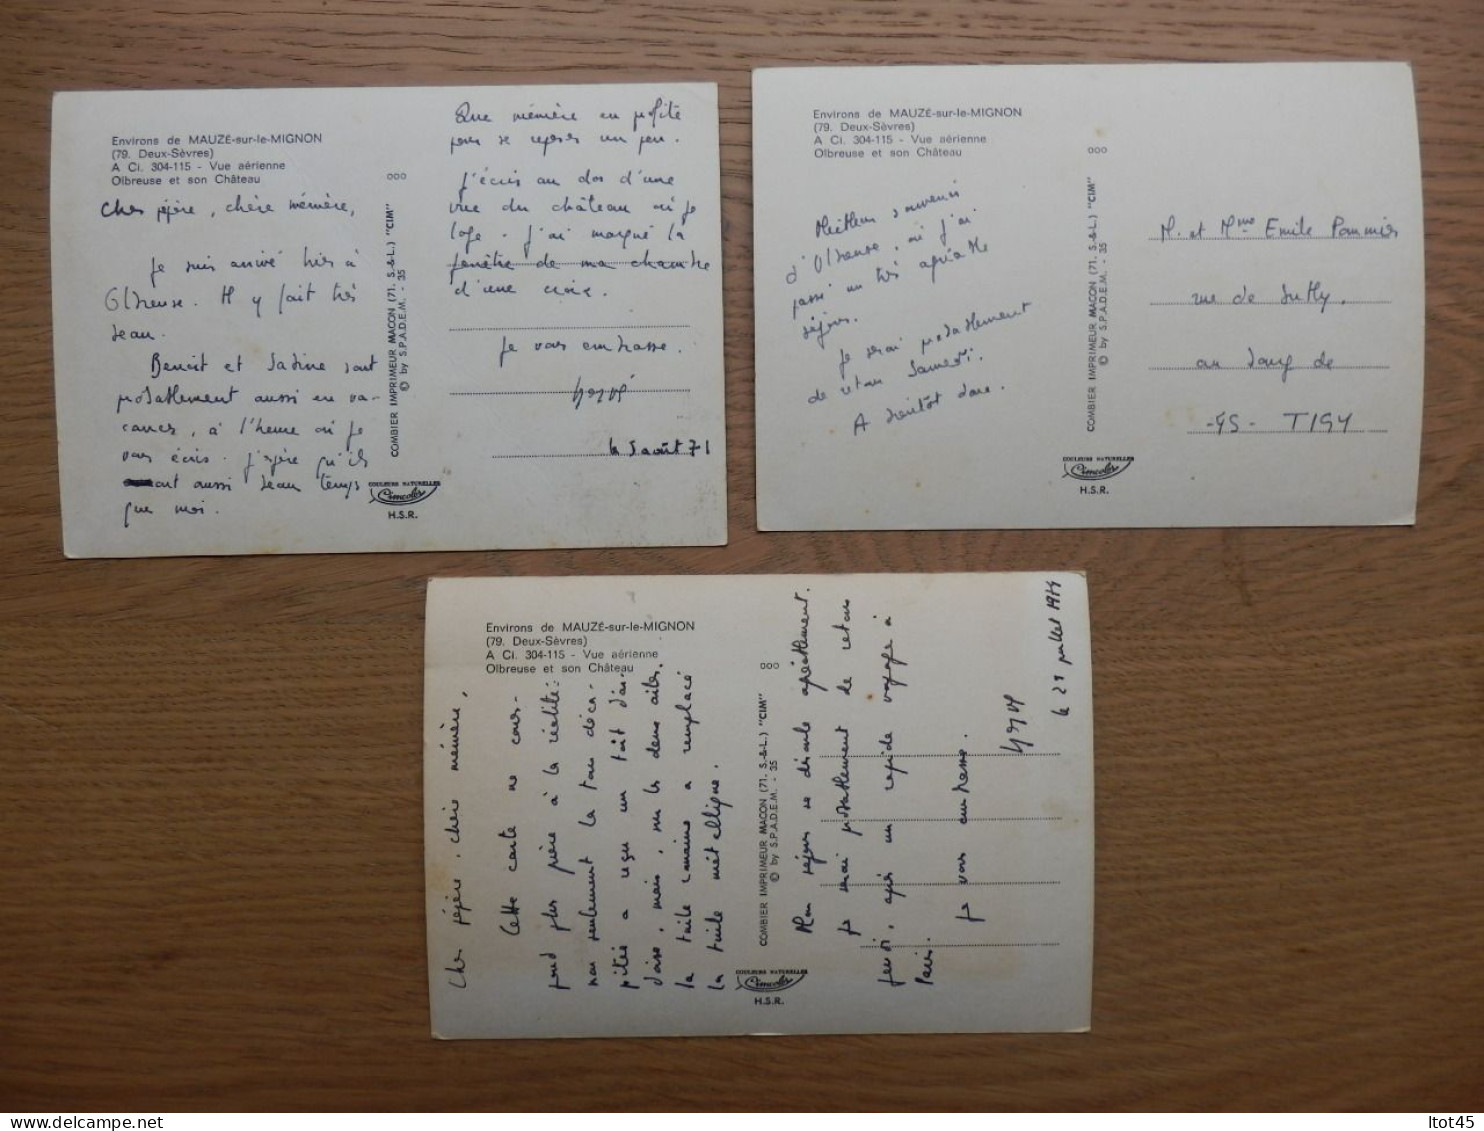 Environs de MAUZÉ-sur-le-MIGNON
(79. Deux-Sèvres)
A Ci. 304-115 - Vue aérienne
Olbreuse et son Château
Cher pépère, chère mémère,
Je suis arrivé hier à
Olbreuse. Il y fait très
beau.
Benoit et Sabine sont
probablement aussi en va-
cances, à l'heure où je
vous écris. J'espère qu'ils
ont aussi beau temps
que moi.
Que mémère en profite
pour se reposer un peu.
J'écris au dos d'une
vue du château où je
loge. J'ai marqué la
fenêtre de ma chambre
d'une croix.
Je vous embrasse.
Hervé
le 5 août 71
000
COMBIER IMPRIMEUR MACON (71. S.-&-L.) "CIM"
© by S.P.A.D.E.M. - 35
COULEURS NATURELLES
Cimcolor
H.S.R.
Environs de MAUZÉ-sur-le-MIGNON
(79. Deux-Sèvres)
A Ci. 304-115 - Vue aérienne
Olbreuse et son Château
Meilleur souvenir
d'Olbreuse, où j'ai
passé un très agréable
séjour.
Je serai probablement
de retour Samedi.
A bientôt donc.
000
COMBIER IMPRIMEUR MACON (71. S.-&-L.) "CIM"
© by S.P.A.D.E.M. - 35
COULEURS NATURELLES
Cimcolor
H.S.R.
M. et Mme Emile Pommier
rue de Sully.
au bourg de
-45- TIGY
Environs de MAUZÉ-sur-le-MIGNON
(79. Deux-Sèvres)
A Ci. 304-115 - Vue aérienne
Olbreuse et son Château
Cher pépère, chère mémère,
Cette carte ne corres-
pond plus guère à la réalité:
non seulement la tour déca-
pitée a reçu un toit d'ar-
doise, mais, sur les deux ailes,
la tuile romaine a remplacé
la tuile métallique.
000
COMBIER IMPRIMEUR MACON (71. S.-&-L.) "CIM"
© by S.P.A.D.E.M. - 35
COULEURS NATURELLES
Cimcolor
H.S.R.
Mon séjour se déroule agréablement.
Je serai probablement de retour
jeudi, après un rapide voyage à
Paris.
Je vous embrasse.
Hervé
le 29 juillet 1974
ltot45